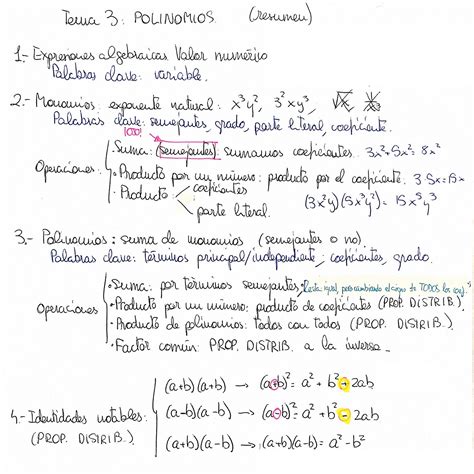 Tema 3: POLINOMIOS. (resumen)
1.- Expresiones algebraicas. Valor numérico
Palabras clave: variable.
2.- Monomios: exponente natural: x³y², 3²xy³, √x
Palabras clave: semejantes, grado, parte literal, coeficiente.
¡OJO!
Operaciones
Suma: (semejantes) sumamos coeficientes. 3x²+5x²=8x²
· Producto por un número: producto por el coeficiente. 3·5x=15x
· Producto coeficientes
parte literal.
(3x²y)(5x³y²)=15x⁵y³
3.- Polinomios: suma de monomios (semejantes o no).
Palabras clave: términos principal/independiente; coeficientes, grado.
Operaciones
· Suma: por términos semejantes * Resta igual, pero cambiando el signo de TODOS los coef.s
· Producto por un número: producto de coeficientes (PROP. DISTRIB.)
· Producto de polinomios: todos con todos (PROP. DISIRIB.)
· Factor común: PROP. DISTRIB. a la inversa.
4.- Identidades notables:
(PROP. DISIRIB.)
(a+b)(a+b) → (a+b)²= a² + b² + 2ab
(a-b)(a-b) → (a-b)²= a² + b² - 2ab
(a+b)(a-b) → (a+b)(a-b)= a² - b²